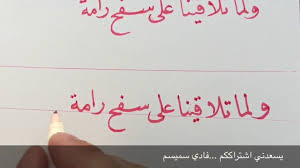 ولما تلاقينا على سفح رامة
ولما تلاقينا على سفح رامة
يسعدني اشتراككم ...فادي سميسم